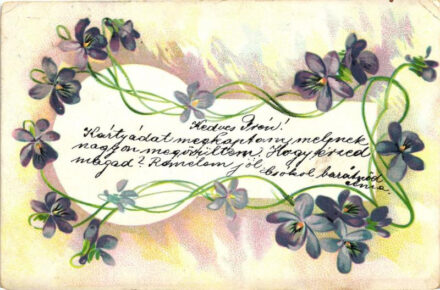 Kedves Irén!
Kártyádat megkaptam, melynek
nagyon megörültem. Hogy érzed
magad? Remélem jól.
Csókol barátnőd